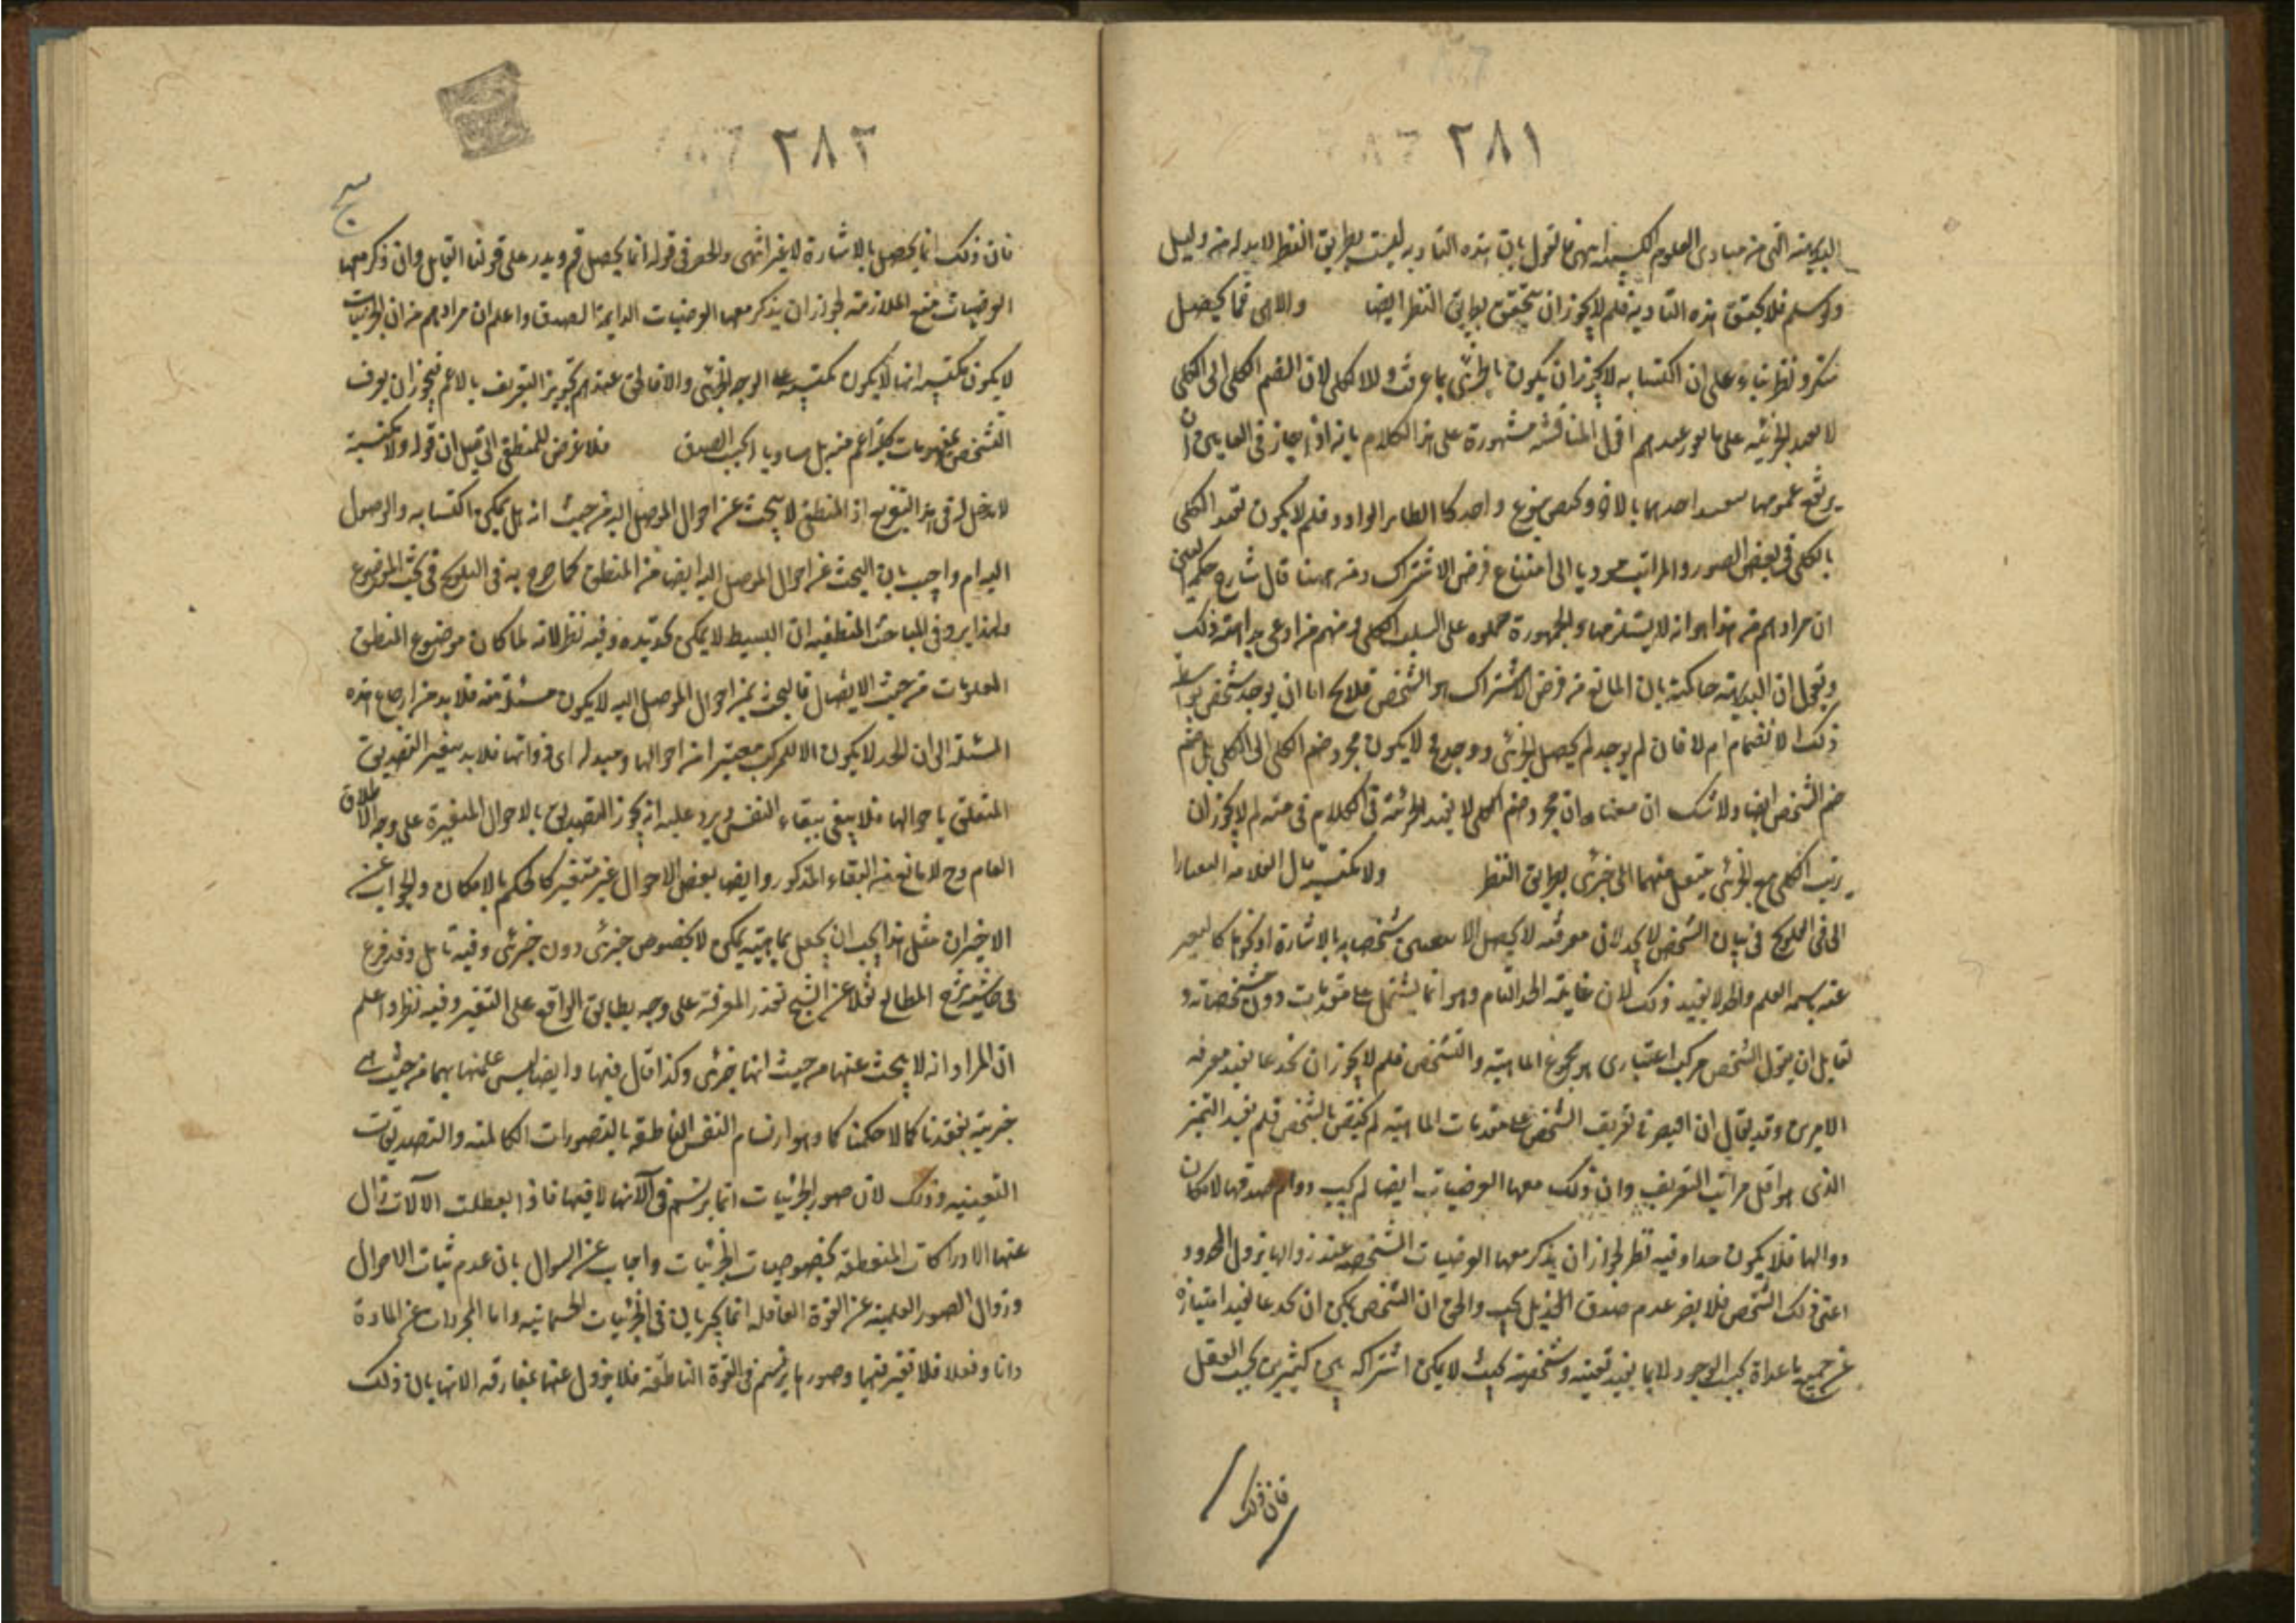 ٢٨١
البديهية التي من مبادي العلوم الكسبية انتهى فما تقول بان هذه التأدية ليست بطريق النظر لا بد له من دليل
ولو سلم فلا يتحقق هذه التأدية فلم لا يجوز ان يتحقق بطريق النظر ايضا والا هي فما يحصل
بفكر ونظر بناء على ان اكتسابه لا يجوز ان يكون بالجزئي بما عرفت ولا الكلي لان انضم الكلي الى الكلي
لا يفيد الجزئية على ما هو عندهم اقول المناقشة مشهورة على هذا الكلام بانه اذا جاز في العامين ان
يرتفع عمومهما بتقييد احدهما بالآخر ويختص بنوع واحد كالطائر الولود فلم لا يكون تقييد الكلي
بالكلي في بعض الصور والمراتب مؤديا الى امتناع فرض الاشتراك ومن ههنا قال شارح حكمة العين
ان مرادهم من هذا هو انه لا يستلزمها والجمهور حملوه على السلب الكلي ومنهم من ادعى بداهة ذلك
ويقول ان البديهة حاكمة بان المانع من فرض الاشتراك هو الشخص فلا يخ اما ان يوجد شخص بواسطة
ذلك الانضمام ام لا فان لم يوجد لم يحصل الجزئي ووجد فلا يكون مجرد ضم الكلي الى الكلي بل ضم
ضم الشخص ايضا ولا شك ان معناه ان مجرد ضم الكلي لا يفيد الجزئية في الكلام في متنه لم لا يجوز ان
يرتب الكلي مع الجزئي ينتقل منهما الى جزئي بطريق النظر ولا مكتسبة قال العلامة التفتازا
الى في التلويح في بيان الشخص لا يحد لان معرفته لا يحصل الا بتعيين مشخصاته بالاشارة او نحوها كالتعبير
عنه باسمه العلم والحد لا يفيد ذلك لان غايته الحد التام وهو انما يشتمل على مقومات دون مشخصاته و
لقايل ان يقول الشخص مركب اعتباري هو مجموع الماهية والتشخص فلم لا يجوز ان يحد بما يفيد معرفة
الامرين وقد يقال ان اقتصر في تعريف الشخص على مقومات الماهية لم يختص بالشخص فلم يفيد التميز
الذي هو اقل مراتب التعريف وان ذكر معها العرضيات ايضا لم يجب دوام صدقها لامكان
زوالها فلا يكون حدا وفيه نظر لجواز ان يذكر معها العرضيات المشخصة عند زوالها يزول المحدود
اعني ذلك الشخص فلا يضر عدم صدق الحد بل يجب والحق ان الشخص يمكن ان يحد بما يفيد امتيازه
عن جميع ما عداه بحسب الوجود لا بما يفيد تعينه وتشخصه بحيث لا يمكن اشتراكه بين كثيرين بحسب العقل
فان ذلك
٢٨٢
فان ذلك انما يحصل بالاشارة لا غير انتهى والحصر في قوله انما يحصل قم ويدر على قولنا القايل وان ذكر معها
العرضيات منع الملازمة لجواز ان يذكر معها العرضيات الدايمة الصدق واعلم ان مرادهم من ان الجزئيات
لا يكون مكتسبة انها لا يكون مكتسبة على الوجه الجزئي والا فالحق عندهم تجويز التعريف بالاعم فيجوز ان يعرف
الشخص بمفهومات كلية اعم منه بل مساويا بحسب الصدق فلا غرض للمنطقي الى قيل ان قوله ولا مكتسبة
لا دخل له في هذا التفريع اذ المنطقي لا يبحث عن احوال الموصل اليه من حيث انه هل يمكن اكتسابه والوصول
اليه ام واجيب بان البحث عن احوال الموصل اليه ايضا من المنطق كما صرح به في التلويح في بحث الموضوع
ولهذا يرد في المباحث المنطقية ان البسيط لا يمكن تحديده وفيه نظر لانه لما كان موضوع المنطق
المعلومات من حيث الايصال فالبحث عن احوال الموصل اليه لا يكون مسئلة منه فلا بد من ارجاع هذه
المسئلة الى ان الحد لا يكون الا للمركب معتبرا من احوالها ومبدله اي ذواتها فلا بد بتغير التصديق
المتعلق باحوالها فلا يبقى ببقاء النفس ويرد عليه انه يجوز التصديق بالاحوال المتغيرة على وجه الاطلاق
العام وح لا مانع من البقاء المذكور وايضا بعض الاحوال غير متغير كالحكم بالامكان والجواب عن
الاخيران مثل هذا يجب ان يجعل بماهيته يمكن لا بخصوص جزئي دون جزئي وفيه تامل وقد فرع
في حاشية شرح المطالع نقلا عن الشيخ تعذر المعرفة على وجه يطابق الواقع على التغير وفيه نظر واعلم
ان المراد انه لا يبحث عنها من حيث انها جزئي وكذا قال فيها وايضا ليس علمنا بها من حيث هي
جزئية يفيدنا كمالا حكميا كما وهو ارتسام النفس الناطقة بالتصورات الكاملة والتصديقات
اليقينية وذلك لان صور الجزئيات انما يرتسم في آلاتها لا فيها فاذا بطلت الآلات زال
عنها الادراكات المتعلقة بخصوصيات الجزئيات واجاب عن السوال بان عدم ثبات الاحوال
وزوال الصور العلمية عن القوة العاقلة انما يجريان في الجزئيات الجسمانية واما المجردات عن المادة
ذاتا وفعلا فلا تغير فيها وصورها يرتسم في القوة الناطقة فلا يزول عنها بمفارقة الابدان ذلك